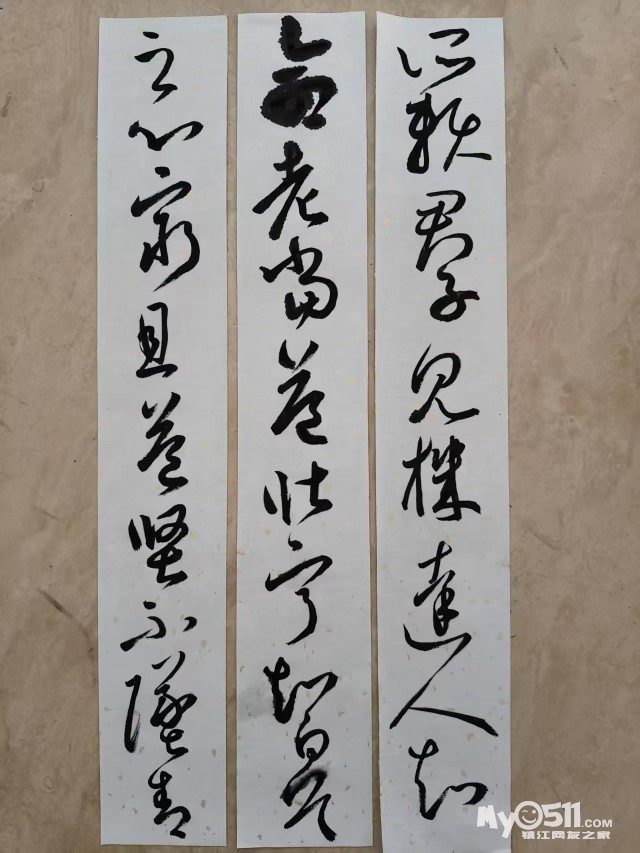 所賴君子見機達人知
命老當益壯寧知白首
之心窮且益堅不墜青
My0511.com
镇江网友之家